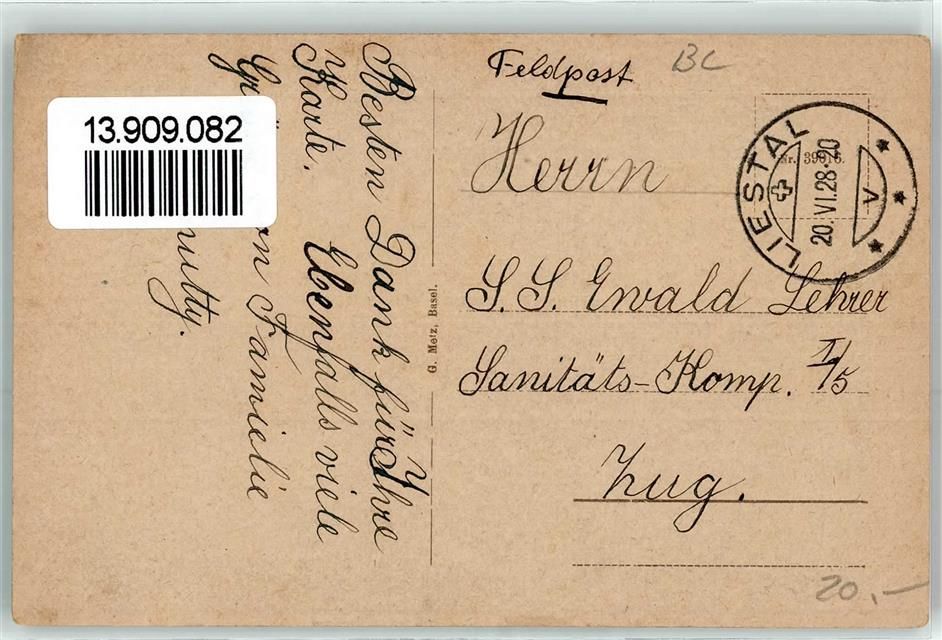 Feldpost
BC
13.909.082
Nr. 39816.
LIESTAL
20.VI.28-20
A
Herrn
S. S. Ewald Lehrer
Sanitäts-Komp. I/5
Zug.
G. Metz, Basel.
20.-
Besten Dank für Ihre
Karte. Ebenfalls viele
Familie